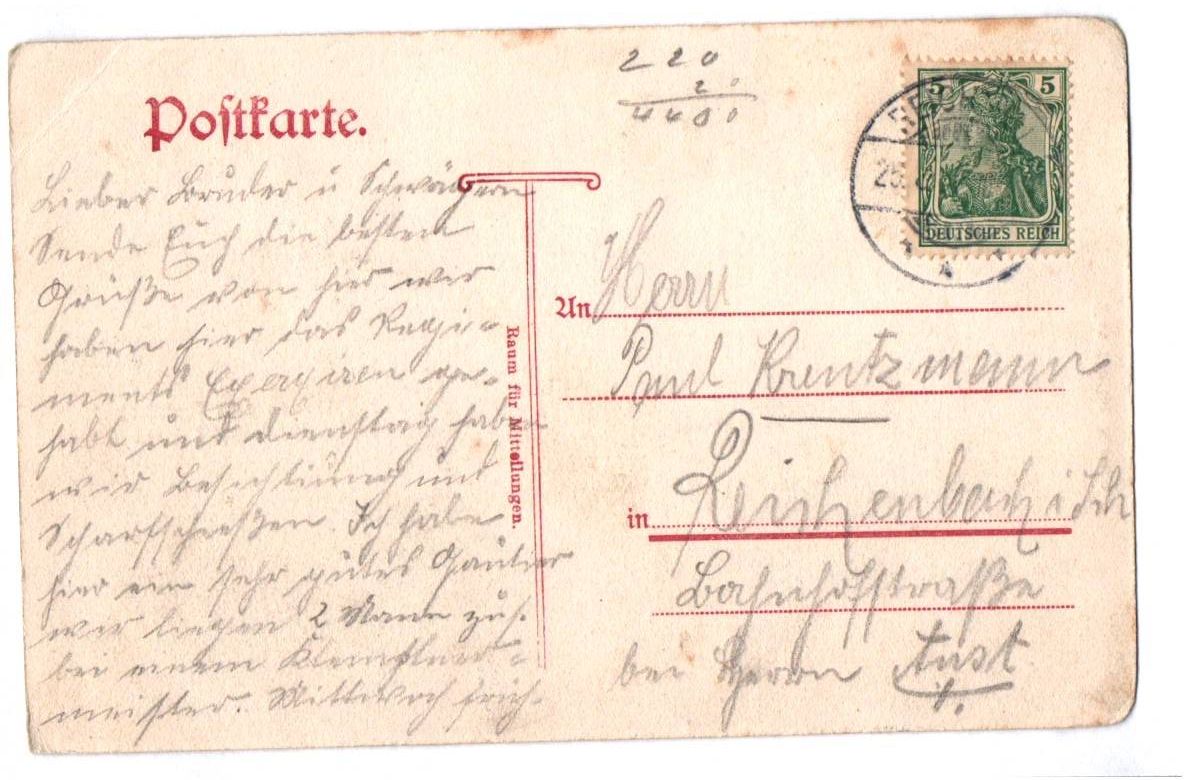 Postkarte.
220
20
4400
5 5
DEUTSCHES REICH
Lieber Bruder u Schwägerin
Sende Euch die besten
Grüße von hier wir
haben hier das Regi-
ments Exerzieren ge-
habt und Dienstag haben
wir Besichtigung und
Scharfschießen. Ich habe
hier ein sehr gutes Quartier
wir 2 Mann zus.
bei einem Klempner-
meister. Mittwoch früh
Raum für Mitteilungen.
An Herrn
Paul Kreutzmann
in Reichenbach i Sch
Bahnhofstraße
bei Herrn Aust